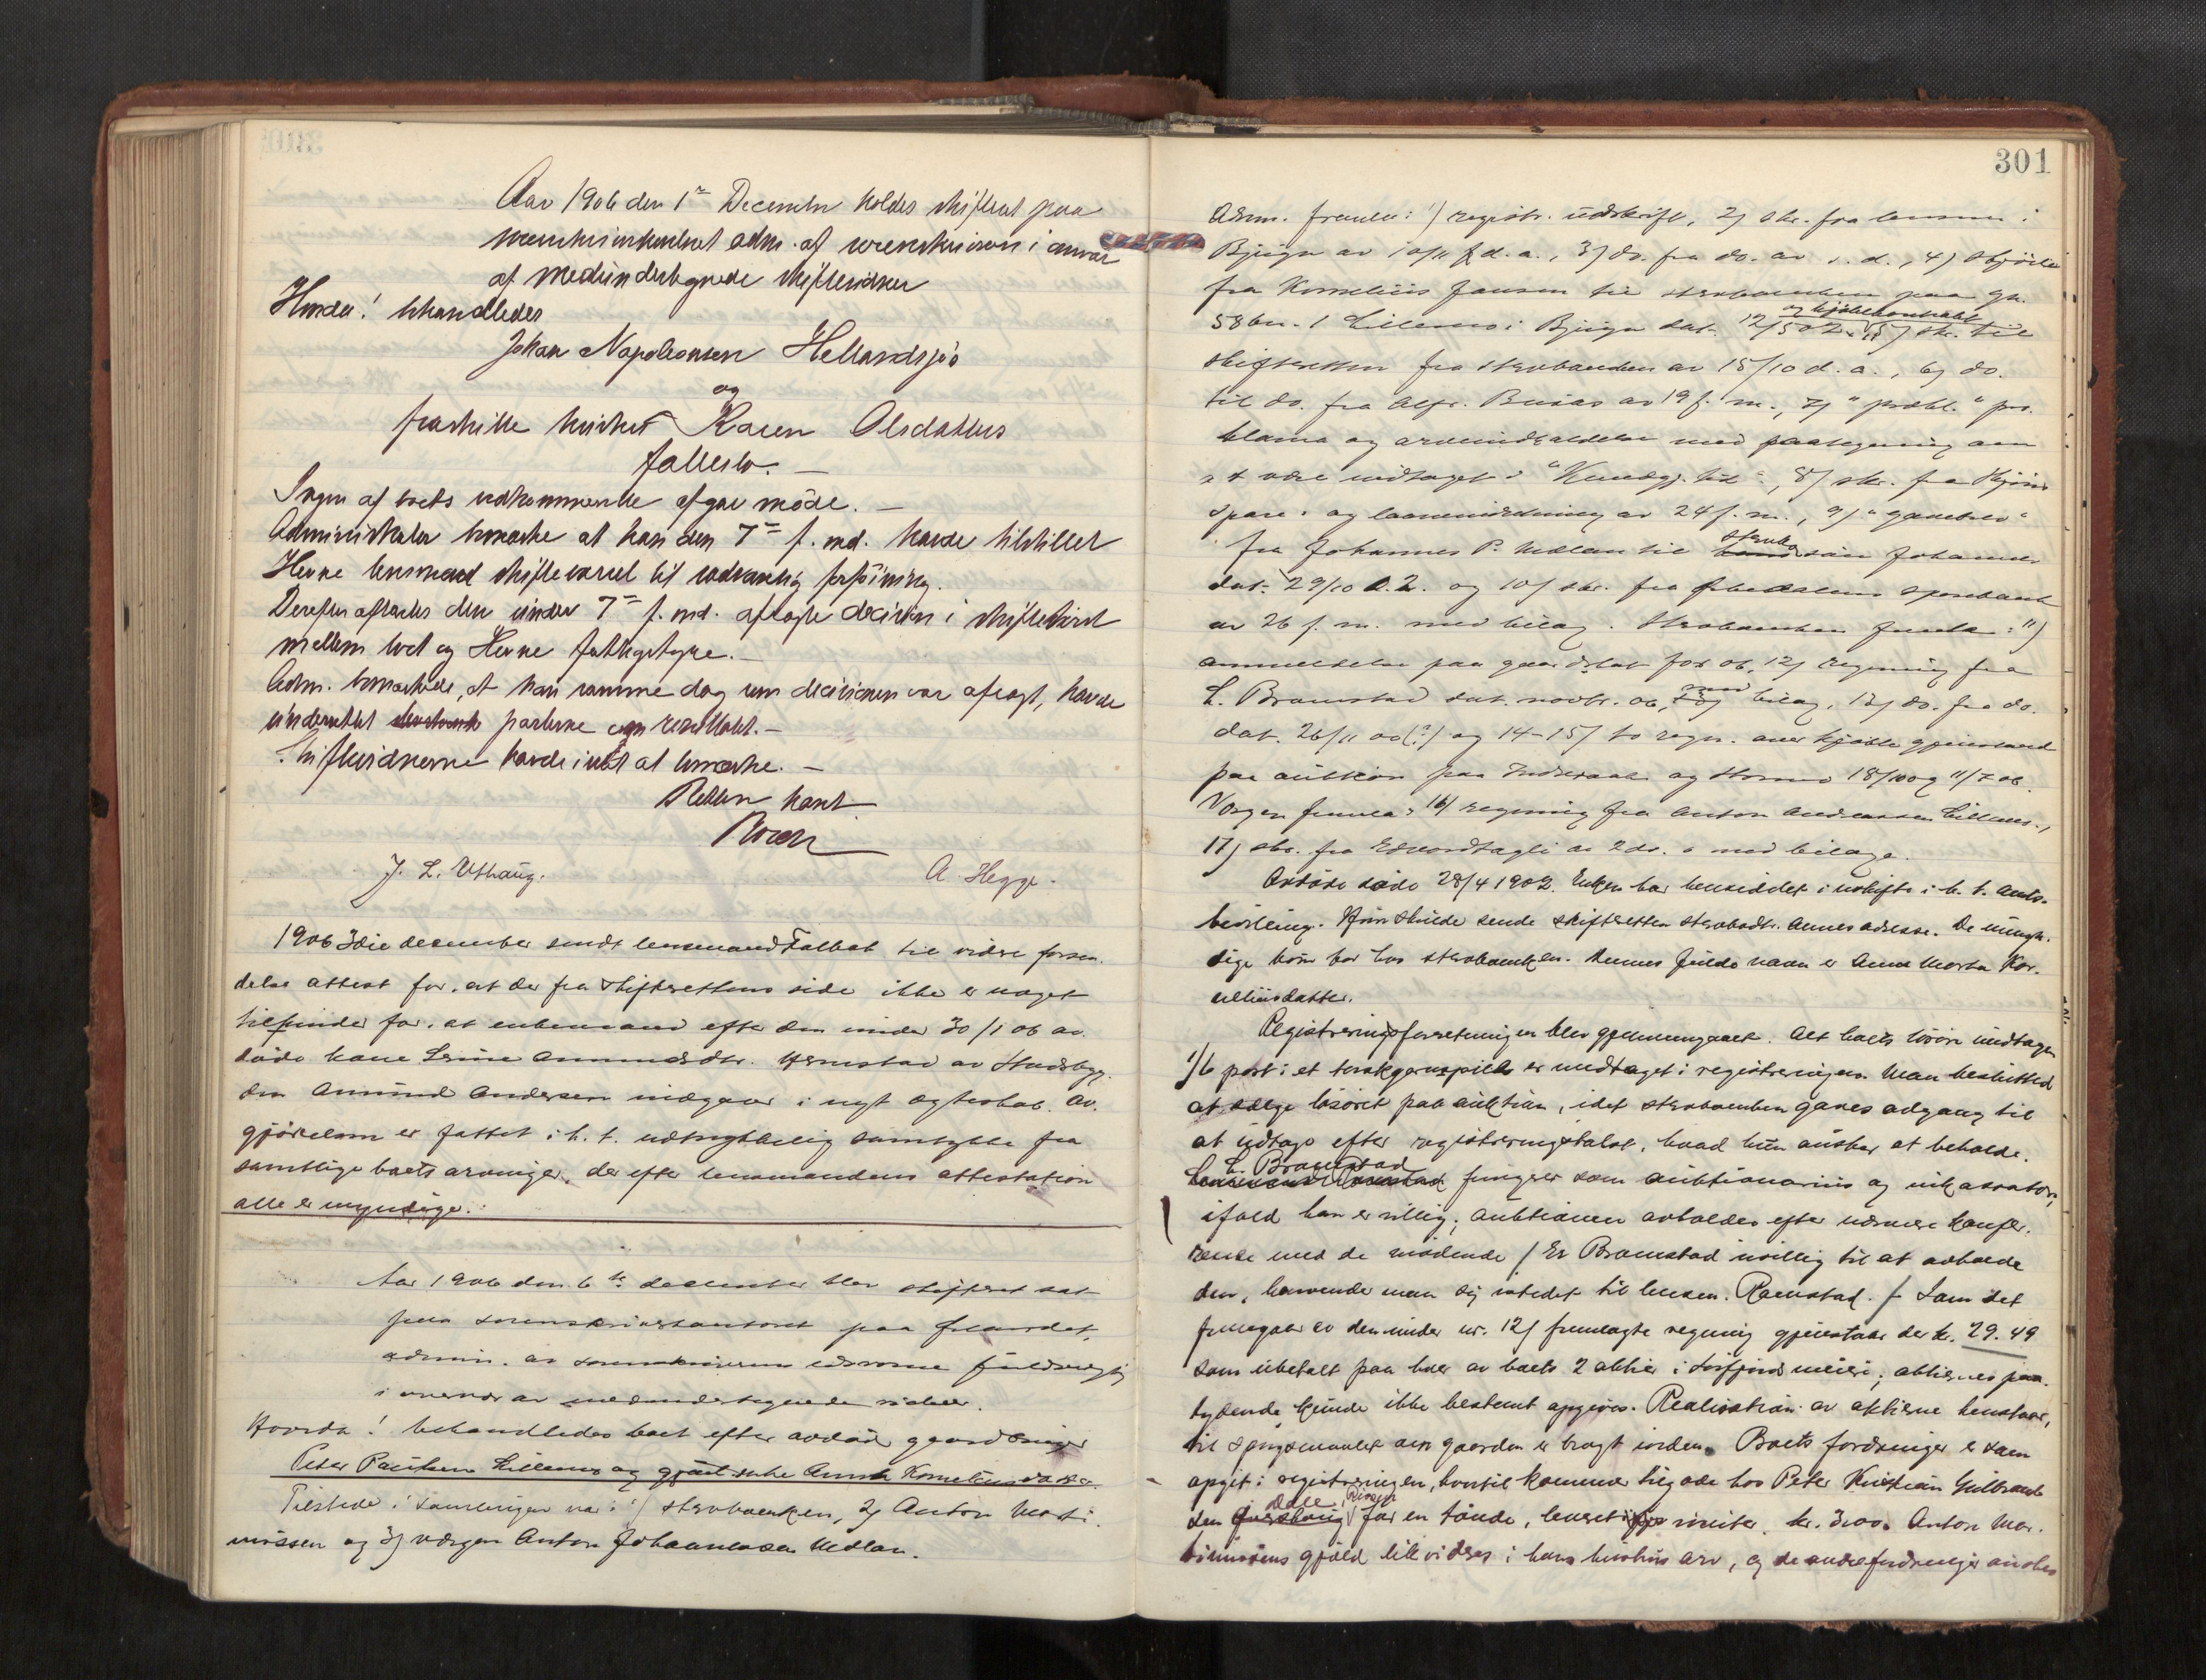 Aar 1906 den 1ste December holdes skifteret paa
sorenskriverkontoret adm. af sorenskriveren i overvær
af medundertegnede skiftevidner
Hvorda! behandledes
Johan Napoleonsen Hellandsjø
og
fraskilte hustru Karen Olsdatters
fallesbo. —
Ingen af boets vedkommende afgav møde. —
Administrator bemærke at han den 7de f. md. havde tilstillet
Hevne lensmand skiftevarsel til sedvanlig forføining.
Derefter aftaltes den under 7de f. md. afsagte decision i skiftetvist
mellem boet og Hevne fattigstyre. —
Adm. bemærkede, at han samme dag som decisionen var afsagt, havde
underrettet parterne om resultatet. —
Skiftevidnerne havde intet at bemærke. —
Retten hævt
J. L. Uthaug.
A. Hegge.
1906 3die desember sendt lensmand Falbak til videre forsen-
delse attest for, at der fra skifterettens side ikke er noget
tilhinder for, at enkemand efter den under 30/1 06 av-
døde kone Lerine Ammundsdtr. Hernstad av Stadsbyg-
den Amund Andersen indgaar i nyt ægteskab. Av-
gjørelsen er fattet i h. t. udtrykkelig samtykke fra
samtlige boets arvinger, der efter lensmandens attestation
alle er myndige.
Aar 1906 den 6te desember blev skifteret sat
paa sorenskriverkontoret paa
admin. av sorenskriveren edsvorne fuldmægtig
i overvær av medundertegnede vidner.
Hvorda! behandledes boet efter avdød gaardbruger
Peter Paulsen Lillemo og gjenl. enke Anna Korneliusdatter
Tilstede i samlingen var: 1) sterboenken, 2) Anton Marti-
nussen og 3) værgen Anton Johannesen Mælan.
301
Adm. fremla: 1) registr. utskrift, 2) skr. fra lensm. i
Bjugn av 10/11 d. a., 3) do. fra do. av s. d., 4) skjøte
fra Kornelius Jansen til sterboenken paa gn.
58 bn. 1 Lillemo i Bjugn dat. 12/5 02 og kjøbekontrakt 5) skr. til
skifteretten fra sterboenken av 15/10 d. a., 6) do.
til do. fra Alfr. Buaas av 19 f. m., 7) "publ." pro-
klama og arveindkaldelse med paategning om
at være indtaget i "Kundgj. tid.", 8) skr. fra
spare- og laaneindretning av 24 f. m., 9) "gavebrev"
fra Johannes P. Mælan til sterbo søn Johannes
dat. 29/10 02. og 10) skr. fra Ørlandets sparebank
av 26 f. m. med bilag. Sterboenken fremla: 11)
anmeldelse paa gaardskat for 06, 12) regning fra
L. Bromstad dat. novbr. 06, med bilag, 13) do. fra do.
dat. 26/11 06(?) og 14-15) to regn. over kjøbte gjenstand
paa auktion paa og 18/10 og 11/7 06.
Værgen fremla: 16) regning fra Anton Andreassen Lillemo,
17) skr. fra Edvard av 2 ds. med bilage.
Avdøde døde 28/4 1902. Enken har hensiddet i uskifte i h. t. amts-
bevilling. Hun skulde sende skifteretten sterbodtr. Annes adresse. De umyn-
dige børn bor hos sterboenken. Annes fulde navn er Anne Marta Kor-
neliusdatter.
Registreringsforretningen blev gjennemgaaet. Alt boets løsøre undtagen
1/6 part i et terskgangspill er medtaget i registreringen. Man besluttede
at sælge løsøret paa auktion, idet sterboenken gaves adgang til
at udtage efter registreringstakst, hvad hun ønsker at beholde.
L. Bromstad fungerer som auktionarius og inkassator,
ifald han er villig; auktionen avholdes efter nærmere konfer-
ence med de mødende / Er Bromstad uvillig til at avholde
den, henvender man sig istedet til lensm. Ramstad. / Som det
fremgaar av den under nr. 12) fremlagte regning gjenstaar der kr. 29.49
som ubetalt paa hver av boets 2 aktier i meieri; aktiernes paa-
lydende kunde ikke bestemt opgives. Realisation av aktierne henstaar,
til spørgsmaalet om gaarden er bragt iorden. Boets fordringer er som
opgit i registreringen, hvortil kommer tilgode hos Peter Kristian Gulbrand-
sen Dale, Rissen for en tønde, leveret ifjor vinter, kr. 3.00. Anton Mar-
tinusens gjæld likvideres i hans hustrus arv, og de andre fordringer ansees